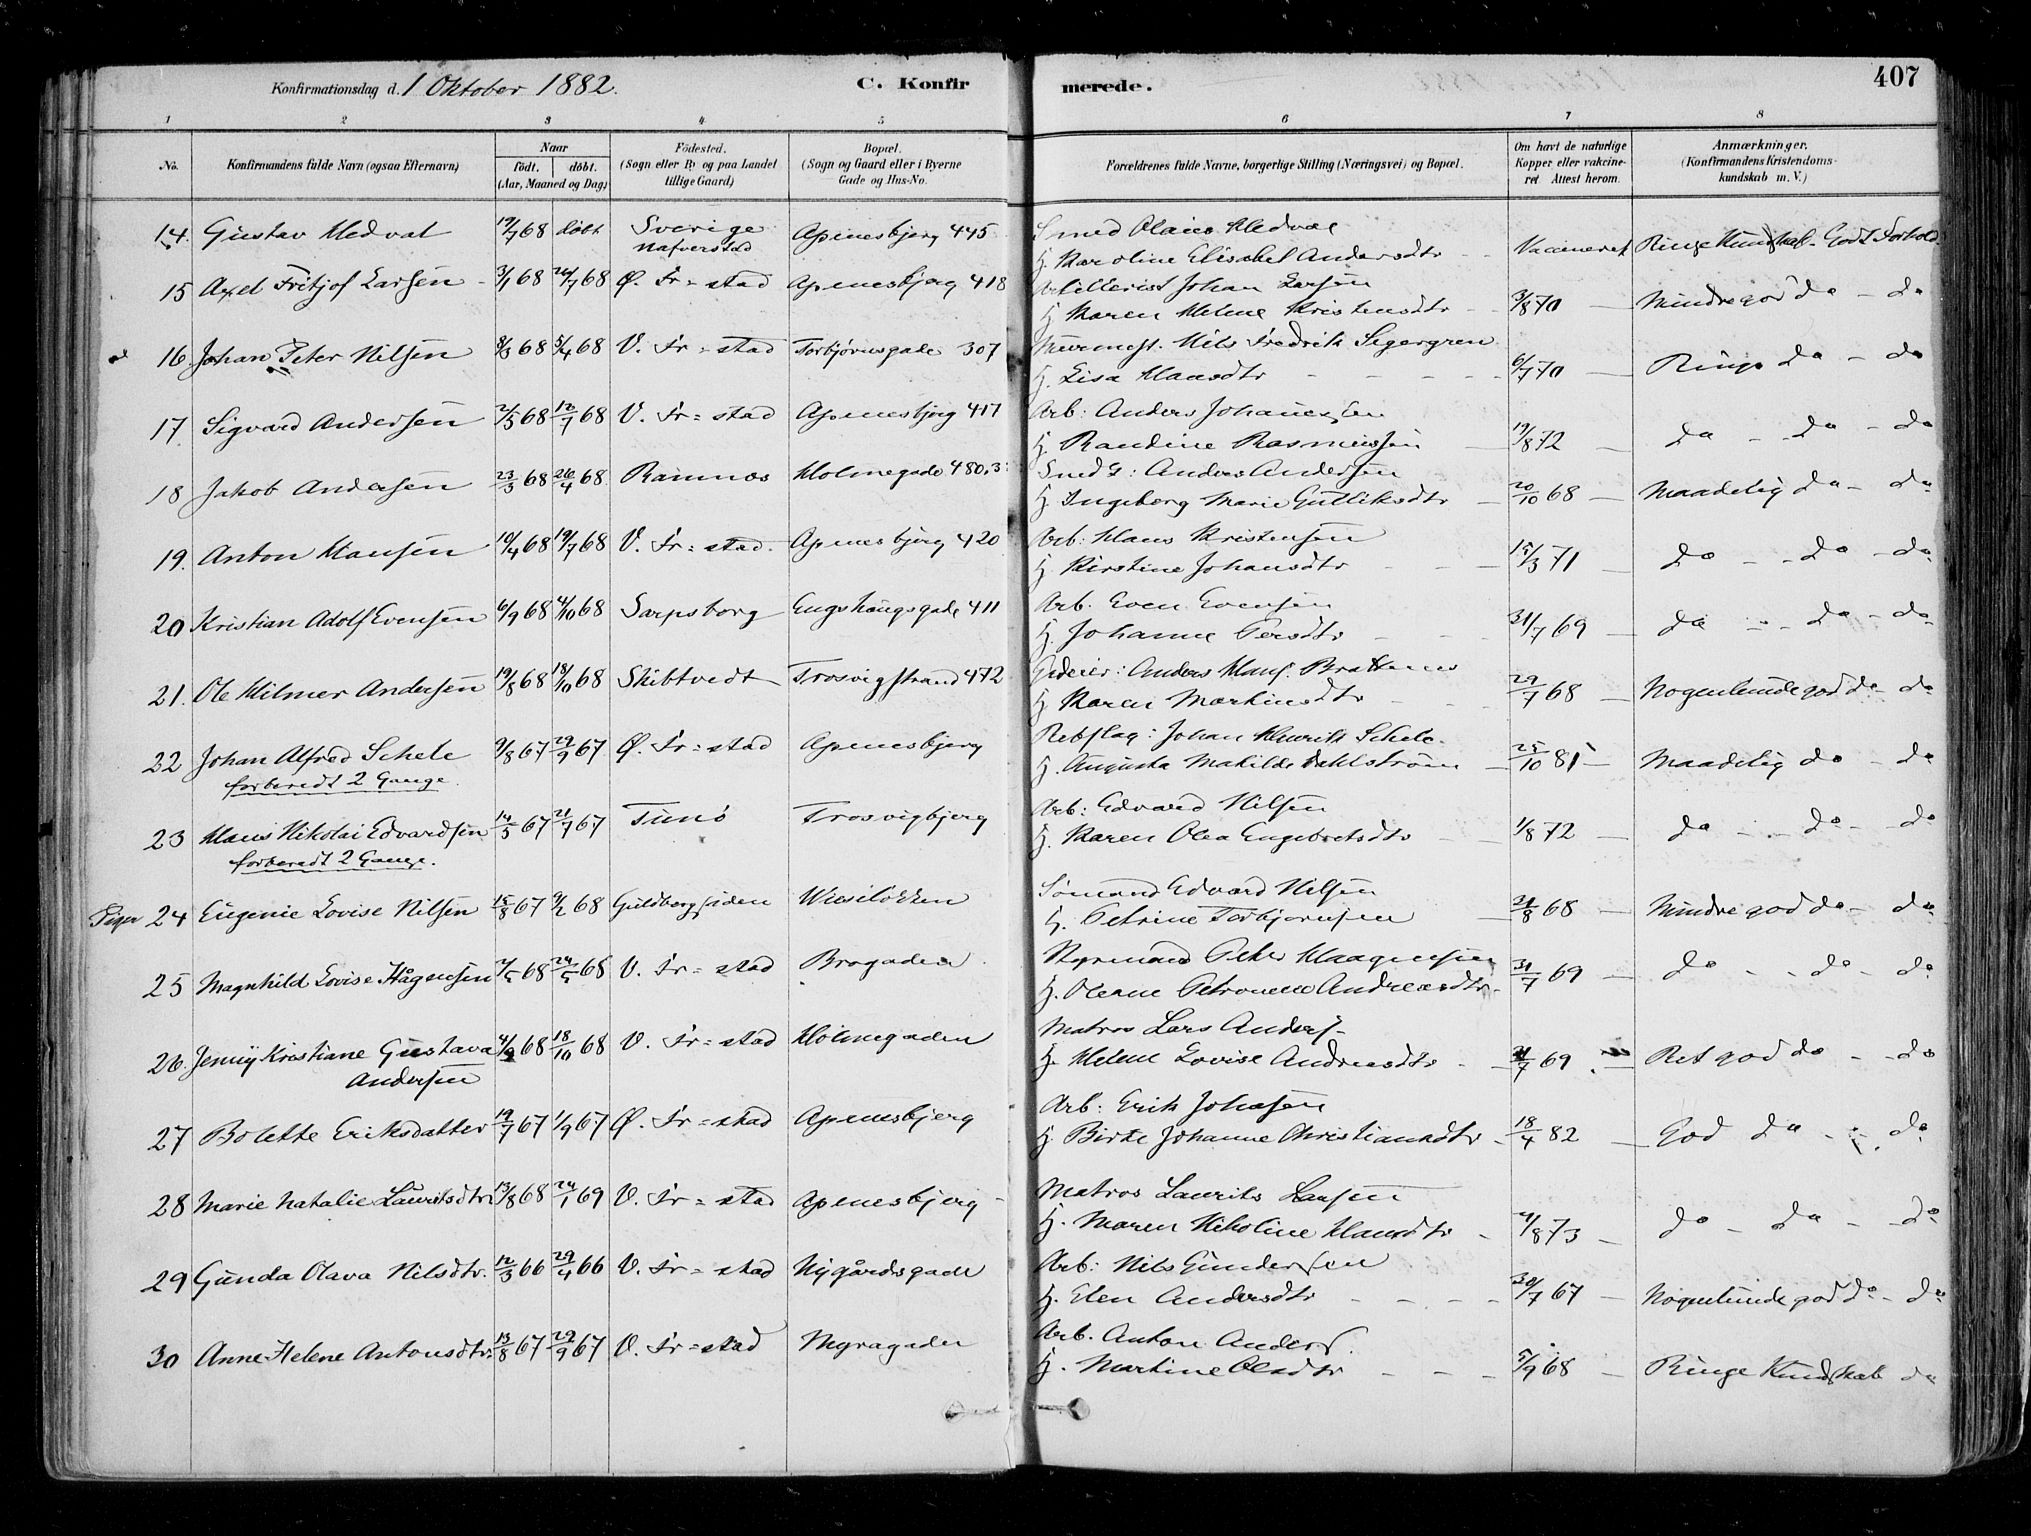 Konfirmationsdag d. 1 Oktober 1882. C. Konfirmerede. 407
1 2 3 4 5 6 7 8
No. Konfirmandens fulde Navn (ogsaa Efternavn) Naar födt. döbt. (Aar, Maaned og Dag) Födested. (Sogn eller By og paa Landet tillige Gaard) Bopæl. (Sogn og Gaard eller i Byerne Gade og Hus-No. Forældrenes fulde Navne, borgerlige Stilling (Næringsvei) og Bopæl. Om havt de naturlige Kopper eller vakcineret Attest herom. Anmærkninger. (Konfirmandens Kristendomskundskab m. V.)
14. Gustav Hedval 19/7 68 döbt Sverige Nafverstad Apenesbjerg 445 Smed Olaus Hedval
H. Karoline Elisabet Andersdtr Vacineret Ringe Kundskab. Godt Forhold.
15 Axel Fritjof Larsen 3/1 68 26/7 68 Ø. Fr=stad Apenesbjerg 418 Artillerist Johan Larsen
H. Karen Helene Kristensdtr 3/8 70 Mindre god do - do
16. Johan Peter Nilsen 8/3 68 5/4 68 V. Fr=stad Torbjørnsgade 307 Murmest. Nils Fredrik Segergren
H. Lisa Hansdtr 6/7 70 Ringe do - do
17. Sigvard Andersen 2/5 68 12/7 68 V. Fr=stad Apenesbjerg 417 Arb: Anders Johannessen
H. Randine Rasmussen 19/8 72 do - do - do
18 Jakob Andersen 23/3 68 26/4 68 Ramnæs Holmegade 480. Anders Andersen
H. Ingeborg Marie Gulliksdtr 20/10 68 Maadelig do - do
19. Anton Hansen 10/4 68 19/7 68 V. Fr=stad. Apenesbjerg 420 Arb: Hans Kristensen
H. Kirstine Johansdtr 15/3 71 do - do - do
20 Kristian Adolf Evensen 6/9 68 4/10 68 Sarpsborg Engshaugsgade 411 Arb. Even Evensen
H. Johanne Persdtr 31/7 69 do - do - do
21. Ole Hilmer Andersen 19/8 68 18/10 68 Skibtvedt Trosvigstrand 472 Anders Hans. Brattenes
H. Karen Martinsdtr 29/7 68 Nogenlunde god do - do
22 Johan Alfred Schele 9/8 67 29/9 67 Ø. Fr=stad Apenesbjerg Rebslag: Johan Henrik Schele.
forberedt 2 Gange. H. Augusta Matilde Dahlstrøm 25/10 81 Maadelig do - do
23 Hans Nikolai Edvardsen 14/5 67 21/7 67 Tunø Trosvigbjerg Arb: Edvard Nilsen
forberedt 2 Gange. H. Karen Olea Engebretsdtr 1/8 72 do - do - do
Piger 24 Eugenie Lovise Nilsen 15/8 67 9/2 68 Guldbergsiden Wiesiløkken Sømand Edvard Nilsen
H. Petrine Torbjørnsen 21/8 68 Mindre god do - do
25 Magnhild Lovise Hågensen 68 24/5 68 V. Fr=stad Brogaden Styrmand Peter Haagensen
H. Oleane Petronelle Andreasdtr 31/7 69 do - do - do
26. Jenny Kristiane Gustava 4/9 68 18/10 68 V. Fr=stad Holmegaden Matros Lars Anders.
Andersen H. Helene Lovise Andreasdtr 69 Ret god do - do
27 Bolette Eriksdatter 19/7 67 1/9 67 Ø. Fr=stad Apenesbjerg Arb: Erik Johasen
H. Birte Johanne Christiansdtr 18/4 82 God do - do
28 Marie Natalie Lauritsdtr 13/8 68 24/1 69 V. Fr=stad Apenesbjerg Matros Laurits Larsen
H. Maren Nikoline Hansdtr 4/8 73 do - do - do
29 Gunda Olava Nilsdtr. 12/3 66 29/4 66 V. Fr=stad Nygårdsgade Arb: Nils Gundersen
H. Elen Andersdtr 30/7 67 Nogenlunde god do - do
30 Anne Helene Antonsdtr. 13/8 67 29/9 67 V. Fr=stad Nyragaden Arb. Anton Anders.
H. Martine Olsdtr 5/9 68 Ringe Kundskab do